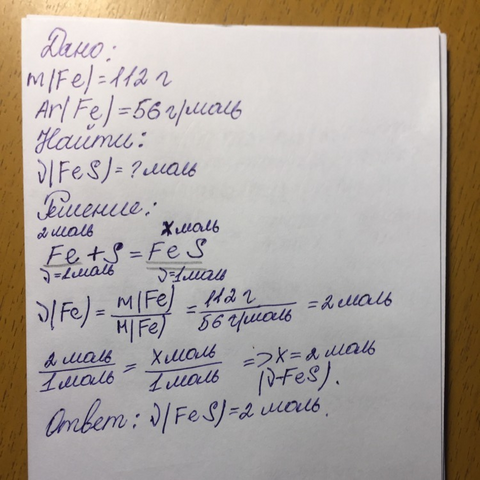 Дано:
m(Fe)=112 г
Ar(Fe)=56 г/моль
Найти:
ν(FeS)=? моль
Решение:
2 моль x моль
Fe + S = FeS
ν=1моль ν=1моль
ν(Fe) = m(Fe)/M(Fe) = 112 г/56 г/моль = 2 моль
2 моль/1 моль = x моль/1 моль => x = 2 моль
(ν-FeS).
Ответ: ν(FeS)=2 моль.